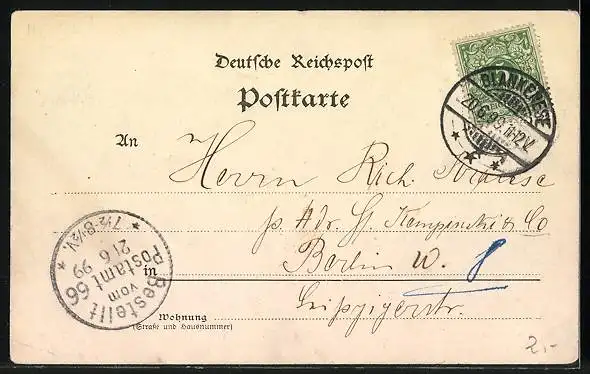 Deutsche Reichspost
Postkarte
BLANKENESE
20.6.99.11-12V.
An
Herrn Rich. Krause
p. Adr. Kempinski & Co
in Berlin W. 8
Leipzigerstr.
Wohnung
(Straße und Hausnummer)
Bestellt
vom
Postamt 66
21 6 99
7½-8½V
2,-